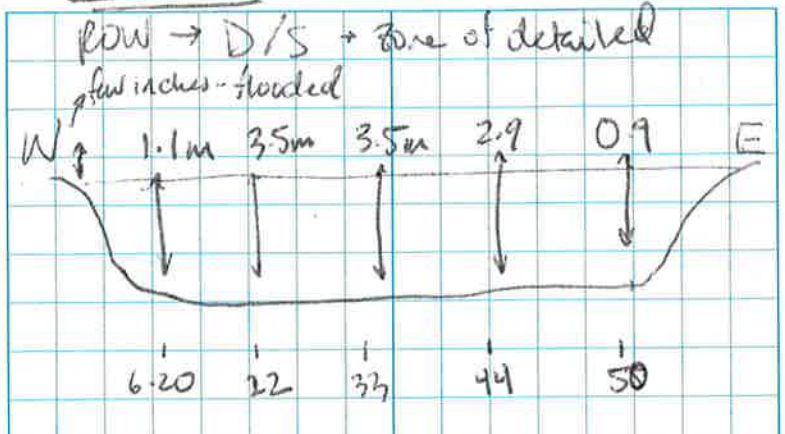 ROW → D/S + Zone of detailed
few inches - flooded
W 1.1m 3.5m 3.5m 2.9 0.9 E
6.20 22 33 44 50